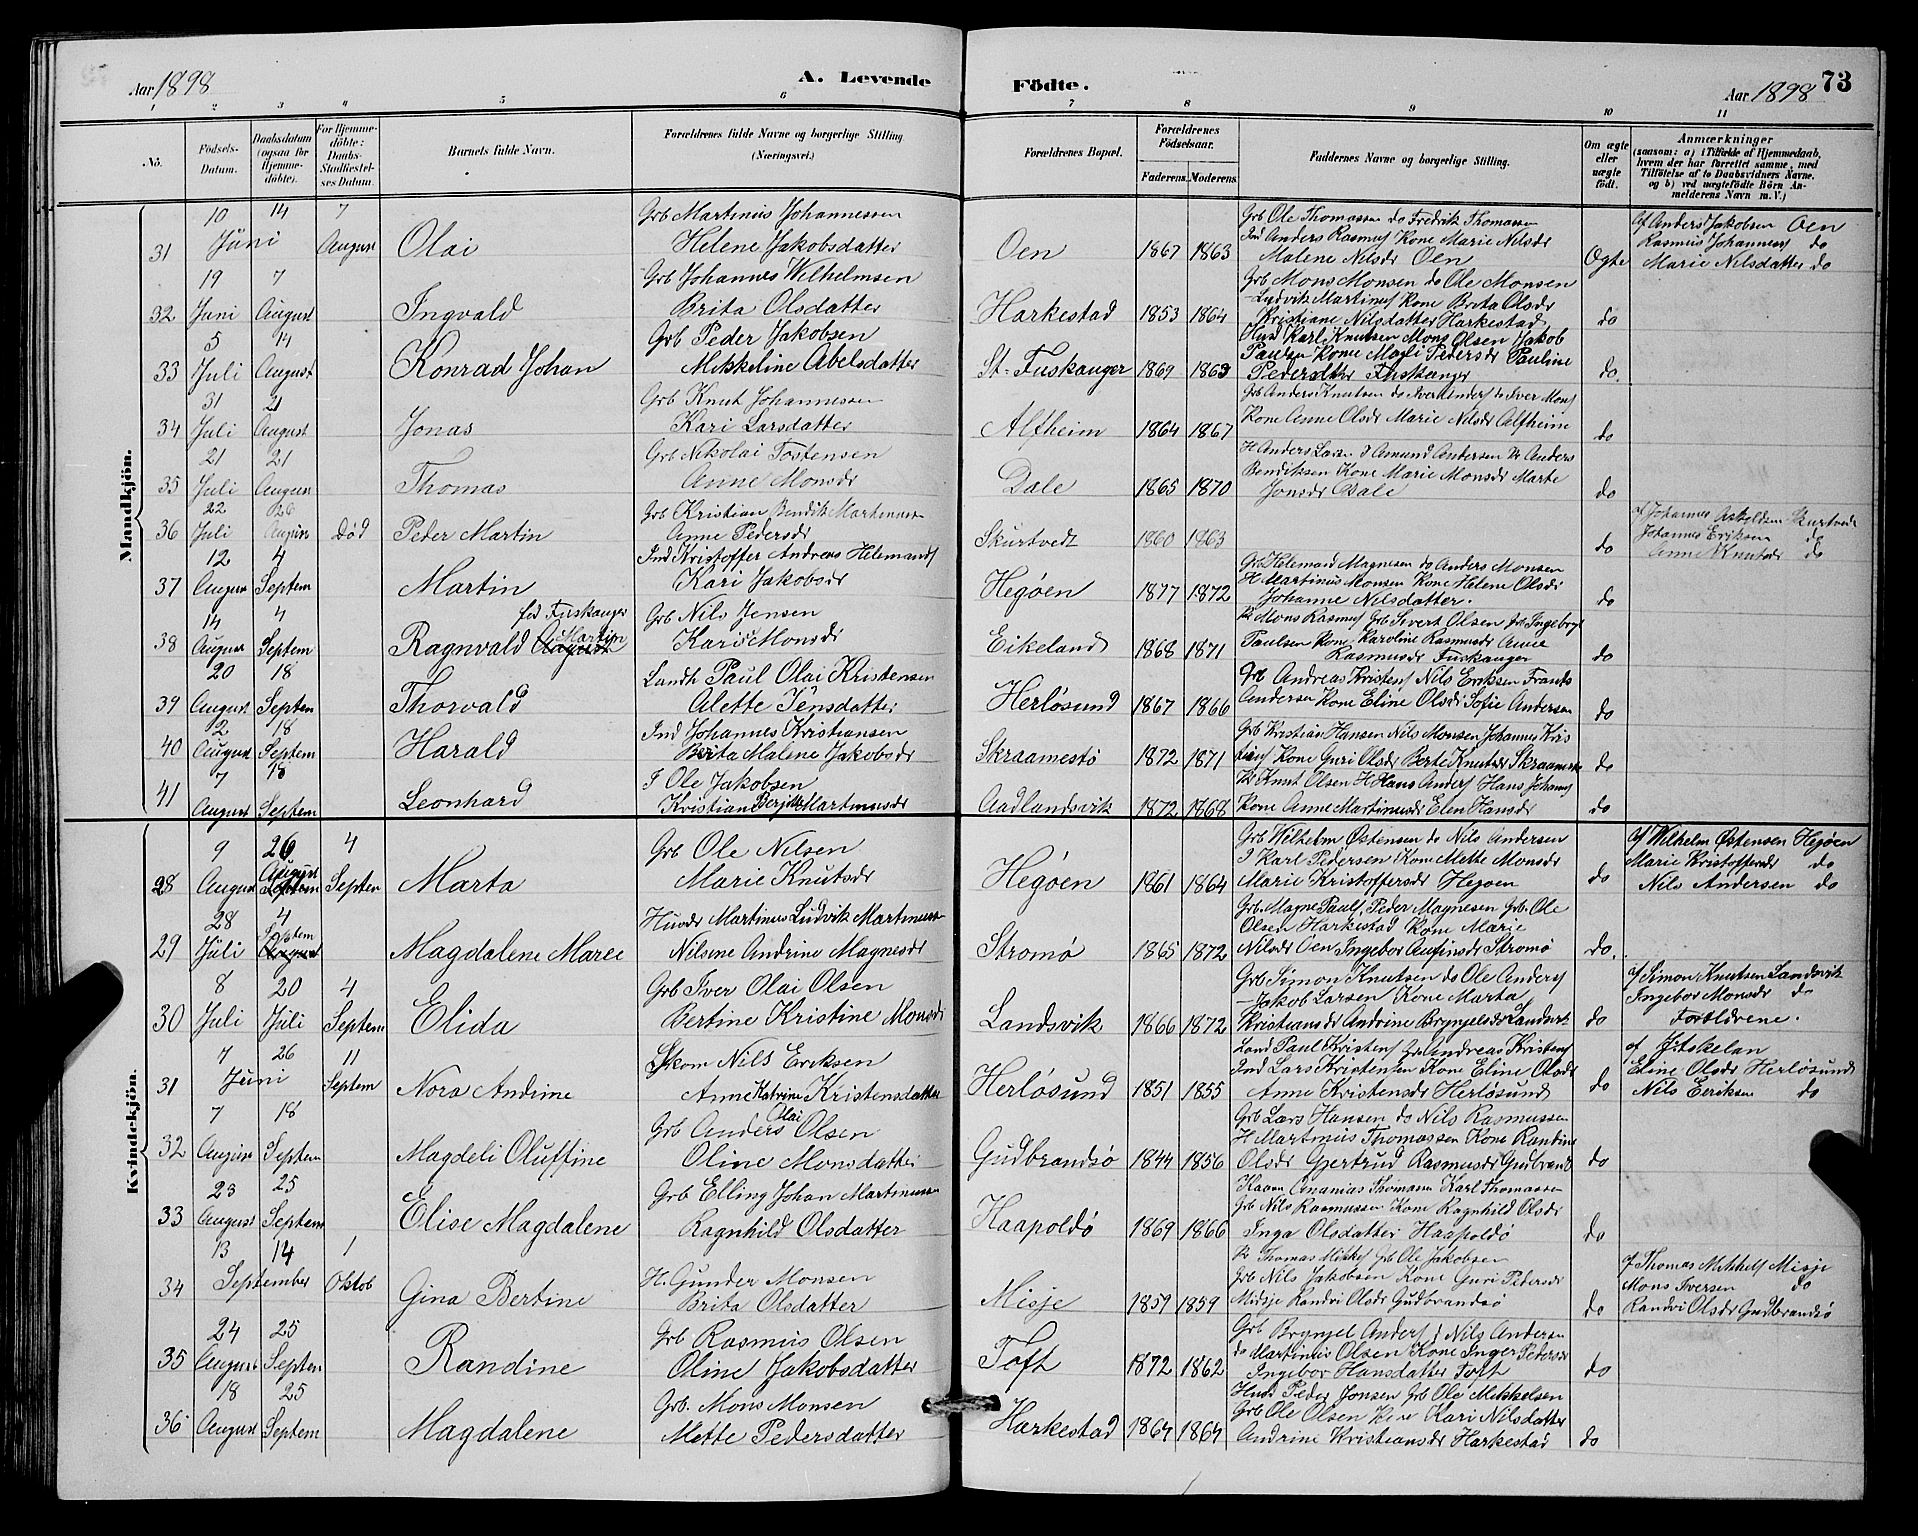 Aar 1898
A. Levende
Födte.
Aar 1898
73
1 2 3 4 5 6 7 8 9 10 11
No.
Födsels-
Datum.
Daabsdatum
(ogsaa for
Hjemme-
döbte).
For Hjemme-
döbte:
Daabs-
Stadfæstel-
ses Datum.
Barnets fulde Navn.
Forældrenes fulde Navne og borgerlige Stilling
(Næringsvei.)
Forældrenes Bopæl.
Forældrenes
Födselsaar.
Faderens. Moderens.
Faddernes Navne og borgerlige Stilling.
Om ægte
eller
uægte
födt.
Anmærkninger
(saasom: a) i Tilfælde af Hjemmedaab,
hvem der har forrettet samme, med
Tilföielse af to Daabsvidners Navne,
og b) ved uægtefödte Börn An-
melderens Navn m. V.)
Mandkjön.
31 10 Juni 14 7 August Olai
Grb Martinus Johannessen
Helene Jakobsdatter
Oen 1867 1863
Grb Ole Thomassen do Fredrik Thomassen
Ind Anders Rasmus Kone Marie Nilsdr
Malene Nilsdr Oen
Ogte
af Anders Jakobsen Oen
Rasmus Johannes do
Marie Nilsdatter do
32 19 Juni 7 August Ingvald
Grb Johannes Wilhelmsen
Brita Olsdatter
Harkestad 1853 1864
Grb Mons Monsen do Ole Monsen
Ludvik Martinus Kone Brita Olsdr
Kristiane Nilsdatter Harkestad
do
33 5 Juli 14 August Konrad Johan
Grb Peder Jakobsen
Mikkeline Abelsdatter
St. Fuskanger 1869 1863
Husd Karl Knutsen Mons Olsen Jakob
Paulsen Kone Magli Pedersdr Pauline
Pedersdtter Fuskanger
do.
34 31 Juli 21 August Jonas
Grb Knut Johannessen
Kari Larsdatter
Alfheim 1864 1867
Grb Anders Knutsen do Iver Anders do Iver Mons
Kone Anne Olsdr Marie Nilsdr Alfheim
do
35 21 Juli 21 August Thomas
Grb Nikolai Tostensen
Anne Monsdr
Dale 1865 1870
H Anders Larsen I Amund Andersen Anders
Bendiksen Kone Marie Monsdr Marte
Jonsdr Dale
do
36 22 Juli 26 August død Peder Martin
Grb Kristian Bendik Martinussen
Anne Pedersdr
Skurtvedt 1860 1863
do
af Johannes Askeldsen Skurtvedt
Johannes Eriksen do
Anne Knutsdr do
37 12 August 4 Septem Martin
Ind Kristoffer Andreas Helemands
Kari Jakobsdr
Hegöen 1877 1872
Gr Helemand Magnesen do Anders Monsen
H Martinus Monsen Kone Helene Olsdr
Johanne Nilsdatter.
do
38 14 August 4 Septem Ragnvald Martin
fød Fuskanger
Grb Nils Jensen
Kari Monsdr
Eikeland 1868 1871
Mons Rasmus Grb Sivert Olsen Ingebrigt
Paulsen Kone Karoline Rasmusdr Anne
Rasmusdr Fuskanger
do
39 20 August 18 Septem Thorvald
Landh Paul Olai Kristensen
Alette Jensdatter
Herløsund 1867 1866
Andreas Kristens Nils Eriksen Frants
Andersen Kone Eline Olsdr Sofie Andersen
do
40 2 August 18 Septem Harald
Ind Johannes Kristiansen
Berita Malene Jakobsdr
Skraamestø 1872 1871
Grb Kristian Hansen Nils Monsen Johannes Kris
tians Kone Guri Olsdr Berte Knutsdr Skraamestø
do
41 7 August 18 Septem Leonhard
I Ole Jakobsen
Kristian Berjitte Martinusdr
Aadlandsvik 1872 1868
Knut Olsen H Hans Anders Hans Johannes
Kone Anne Martinusdr Elen Hansdr
do
Kvindekjön.
28 9 August 26 August 4 Septem Marta
Grb Ole Nilsen
Marie Knutsdr
Hegöen 1861 1864
Grb Wilhelm Østensen do Nils Andersen
I Karl Pedersen Kone Mette Monsdr
Marie Kristoffersdr Hegøen
do
af Wilhelm Østensen Hegöen
Marie Kristoffersdr do
Nils Andersen do
29 28 Juli 4 Septem Magdalene Marie
Husdr Martinus Ludvik Martinussen
Nilsine Andrine Magnesdr
Stromø 1865 1872
Grb. Magne Pauls, Peder Magnesen Grb. Ole
Olsen Harkestad Kone Marie
Nilsdr Oen Ingebor Aufinsdr Stromø
do.
30 8 Juli 20 Juli 4 Septem Elida
Grb Iver Olai Olsen
Bertine Kristine Monsdr
Landsvik 1866 1872
Grb Simon Knutsen do Ole Anders
Jakob Larsen Kone Marta
Kristiansdr Andrine Brynjelsdr Landsvik
do
af Simon Knutsen Landsvik
Ingebor Monsdr do
Foreldrene.
31 7 Juni 26 11 Septem Nora Andrine
Skom Nils Eriksen
Anne Katrine Kristensdatter
Herløsund 1851 1855
Land Paul Kristens Grb Andreas Kristens
Ind Lars Kristensen Kone Eline Olsdr
Anne Kristensdr Herløsund
do
af
Eline Olsdr Herløsund
Nils Eriksen do
32 7 August 18 Septem Magdeli Oluffine
Grb Anders Olai Olsen
Oline Monsdatter
Gudbrandsø 1844 1856
Grb Lars Hansen do Nils Rasmussen
H Martinus Thomassen Kone Randine
Olsdr Gjertrud Rasmusdr Gudbrand
do
33 23 August 25 Septem Elise Magdalene
Grb Elling Johan Martinussen
Ragnhild Olsdatter
Haapoldø 1869 1866
Kaarn Ananias Thomassen Karl Thomassen
Grb Nils Rasmussen Kone Ragnhild Olsdr
Inga Olsdatter Haapoldø
do
34 13 September 14 1 Oktob Gina Bertine
H. Gunder Monsen
Brita Olsdatter
Misje 1859 1859
Thomas Mikkels Grb Ole Jakobsen
Grb Nils Jakobsen Kone Guri Pedersdr
Midsje Randvi Olsdr Gudbrandsø
do
af Thomas Mikkels Misje
Mons Iversen do
Randvi Olsdr Gudbrandsø
35 24 August 25 Septem Randine
Grb Rasmus Olsen
Oline Jakobsdatter
Toft 1872 1862
Grb Brynjel Anders d Nils Andersen
do Martinus Olsen Kone Inger Pedersdr
Ingebor Hansdatter Toft
do
36 18 August 25 Septem Magdalene
Grb. Mons Monsen
Mette Pedersdatter
Harkestad 1864 1864
Husd Peder Jonsen Grb Ole Mikkelsen
Grb Ole Olsen Kone Kari Nilsdatter
Andrine Kristiansdr Harkestad
do